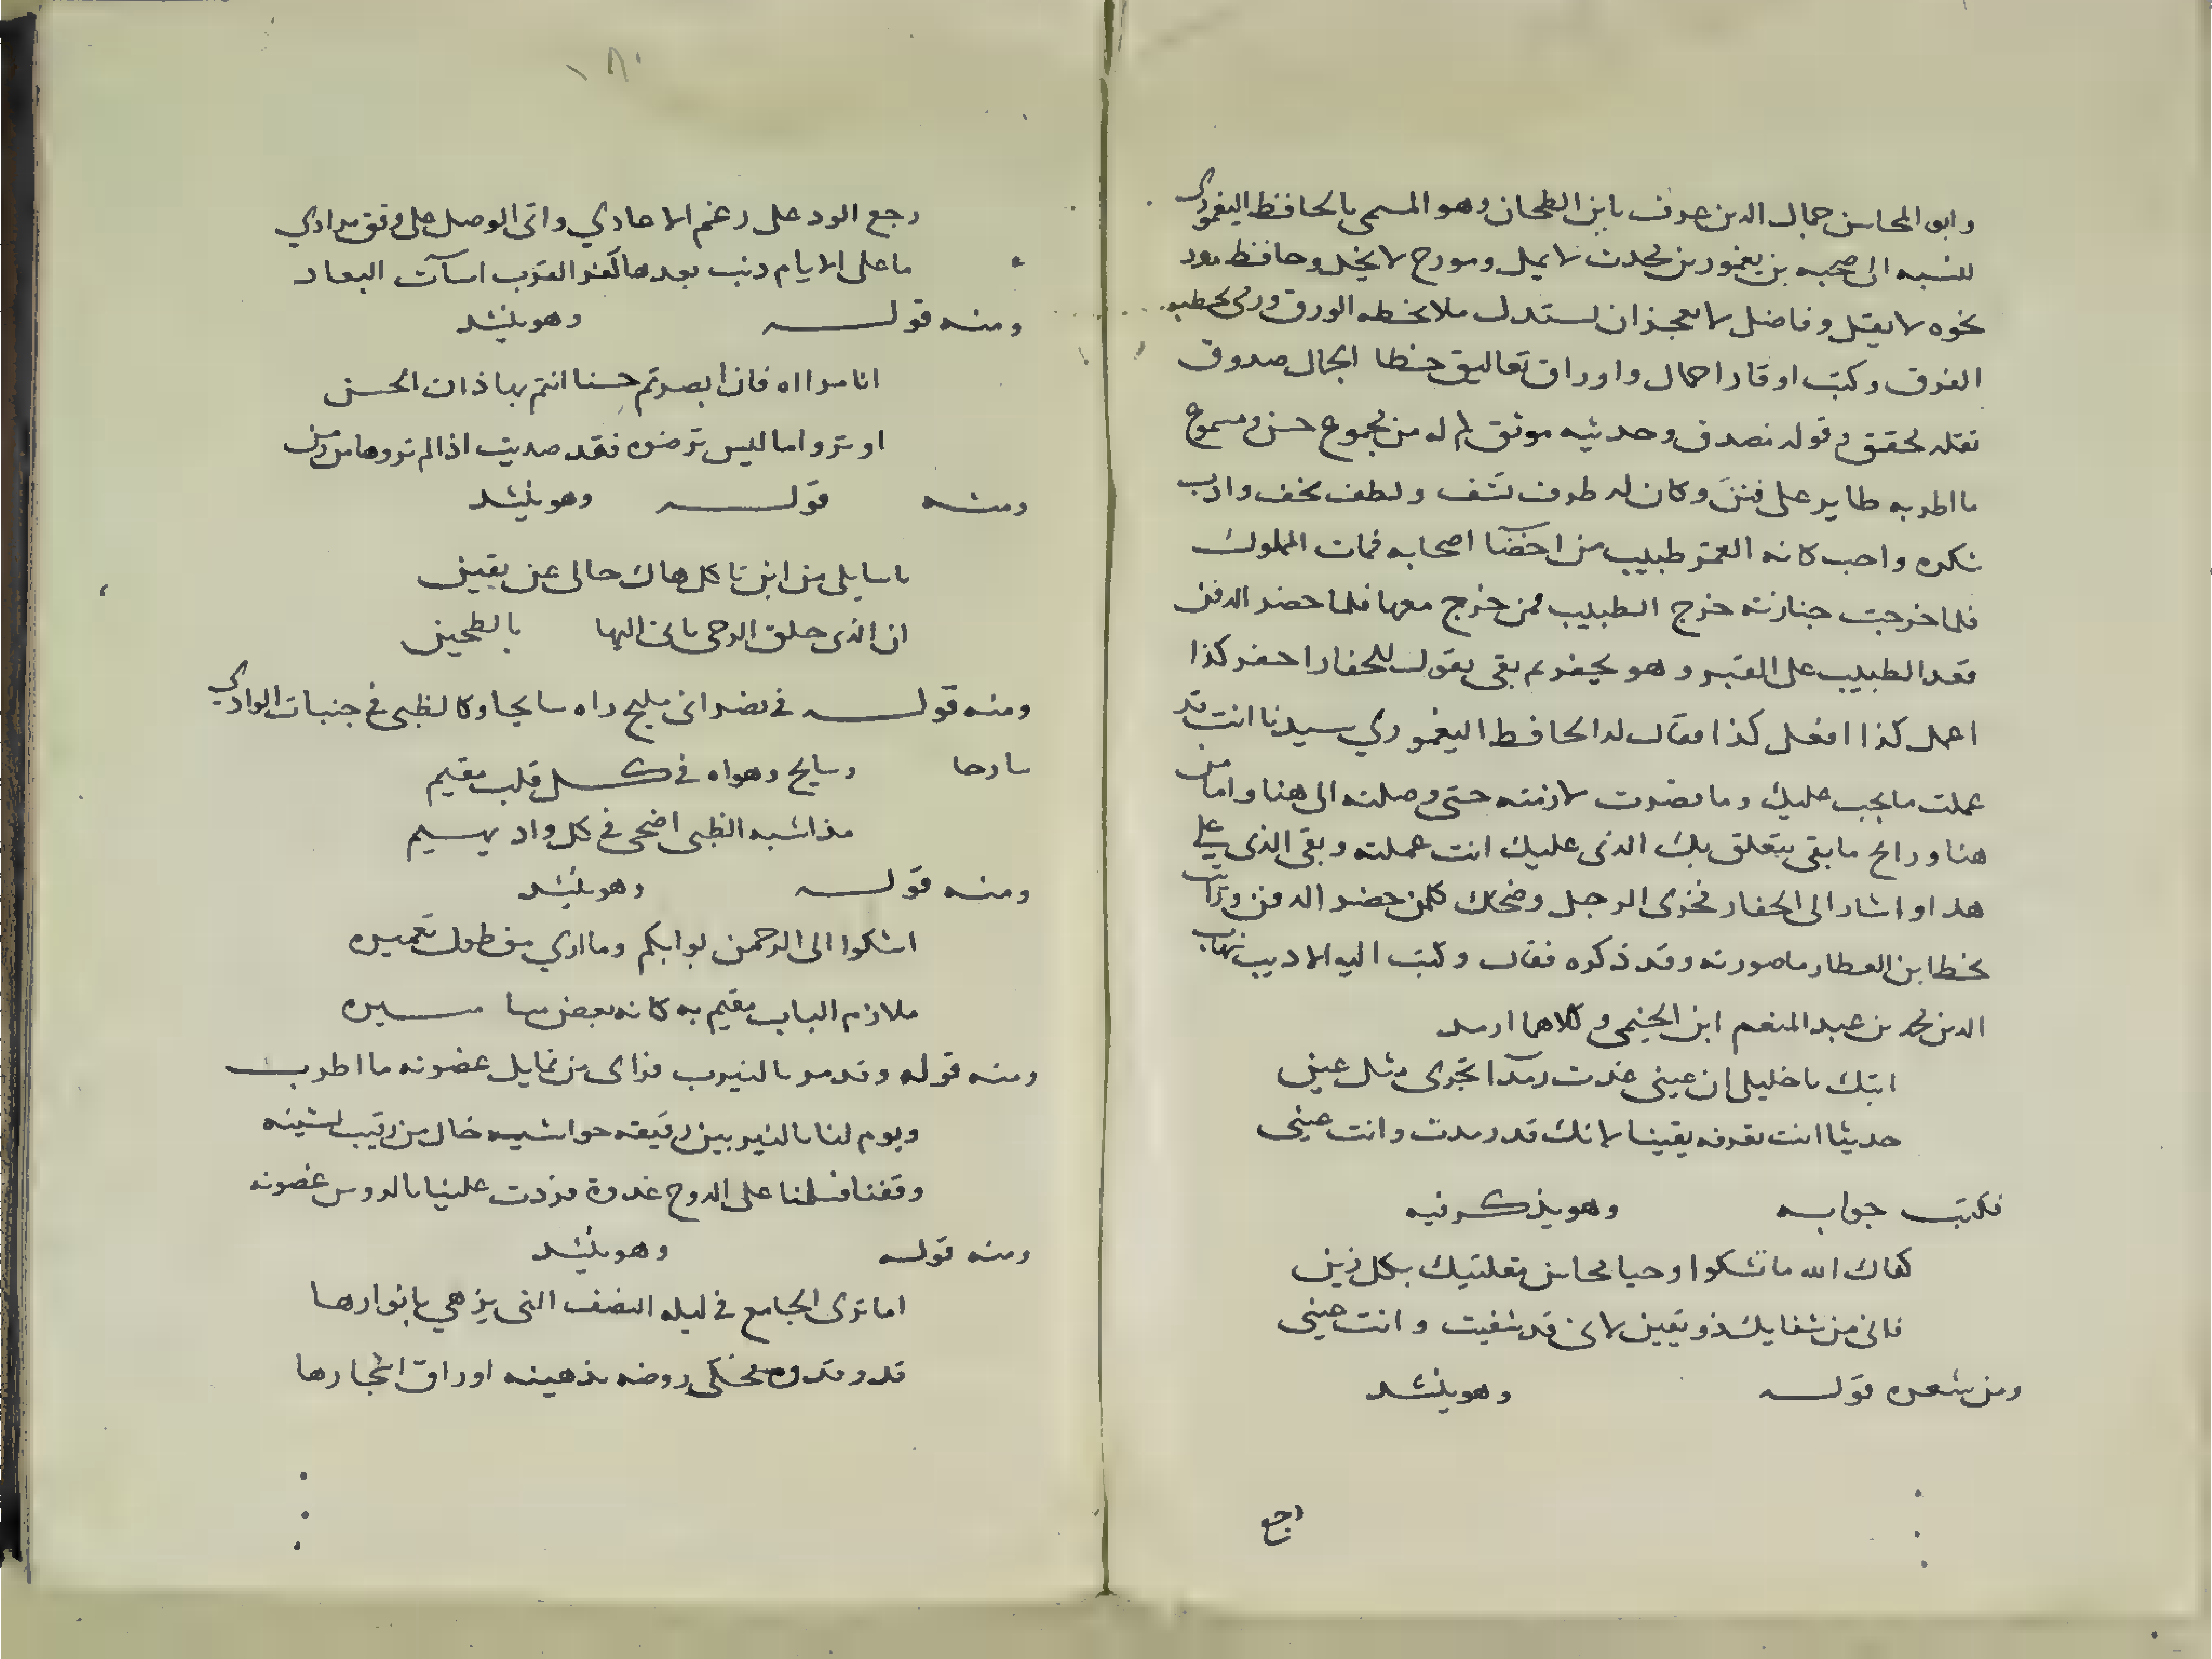 وابو المحاسن جمال الدين عرف بابن الطحان وهو المسمى بالحافظ اليغموري
للنسبه الى صحبه بن يغمور من محدث لا يمل ومورخ لا يخل وحافظ مود
نحوه لا يقتل وفاضل لا يعجز ان لستدل ملا بخطه الورق ورمى بخطبه
الفرق وكتب اوقار احمال واوراق تعاليق حنطا الجمال صدوق
نقله محقق وقوله نصدق وحديثه موثق لم له من مجموع حسن ومسموع
ما اطربه طاير على فنن وكان له طرف تشف ولطف تخف وادب
نكره واحب كانه القمر طبيب من اخصا اصحابه فمات المملوك
فلما خرجت جنازته خرج الطبيب ممن خرج معها فلما حضر الدفن
فقد الطبيب على القبر وهو يحفر م بقى يقول للحفار احفر كذا
اعمل كذا افعل كذا فقال له الحافظ اليغموري سيدنا انت قد
عملت ما يجب عليك وما قصرت لازمته حتى وصلته الى هنا واما من
هنا ورايح ما بقى يتعلق بك الذى عليك انت عملته وبقى الذى على
هذا واشار الى الحفار فخزى الرجل وضحك كلمن حضر الدفن ورات
بخط ابن العطار ما صورته وقد ذكره فقال وكتب اليه الاديب شهاب
الدين محمد بن عبد المنعم ابن الخيمى وكلاهما ارمد
ابثك يا خليلى ان عينى غدت رمدا تجرى مثل عين
حديثا انت تعرفه يقينا لانك قد رمدت وانت عينى
فكتب جوابه وهو يذكر فيه
كفاك الله ما تشكوا وحيا محاسن مقلتيك بكل زين
فانى من شفايك ذو يقين لانى قد شفيت وانت عينى
ومن شعره قوله وهو ينشد
رجع
١٨٠
رجع الود على رغم الاعادي واتى الوصل على وفق مرادي
ما على الايام ذنب بعدها كفر القرب اسآت البعاد
ومنه قوله وهو ينشد
انا مراه فان ابصرتم حسنا انتم بها ذاك الحسن
او تروا ما ليس ترضوه فقد صديت اذا لم تروها من زمن
ومنه قوله وهو ينشد
يا سايلى من اين تاكل هاك حالى عن يقين
ان الذى خلق الرحى ياتى اليها بالطحين
ومنه قوله في نصرانى مليح راه سايحا وكالظبى في جنبات الوادي
سارحا وسايح وهواه في كل قلب مقيم
مذ اشبه الظبى اضحى في كل واد يهيم
ومنه قوله وهو ينشد
اشكوا الى الرحمن بوابكم وما اري من طول تعميره
ملازم الباب مقيم به كانه بعض مساميره
ومنه قوله وقد مر بالنيرب فراى من تمايل غصونه ما اطرب
ويوم لنا بالنيربين رقيقه حواشيه خال من رقيب يشينه
وقفنا فسلمنا على الدوح غدوة فردت علينا بالروس غصونه
ومنه قوله وهو ينشد
اما ترى الجامع في ليله النصف التى يزهي بانوارها
قد وقدوه فحكى روضه مذهبه اوراق اشجارها